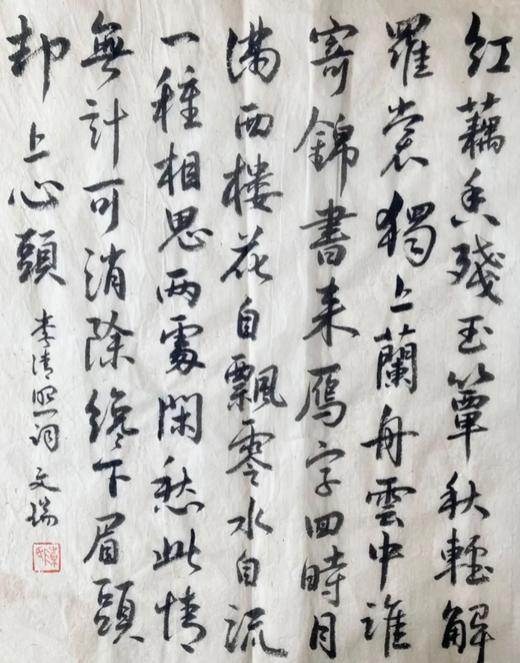 紅藕香殘玉簟秋輕解
羅裳獨上蘭舟雲中誰
寄錦書来雁字回時月
滿西樓花自飄零水自流
一種相思兩處閑愁此情
無計可消除纔下眉頭
却上心頭
李清照词 文瑞